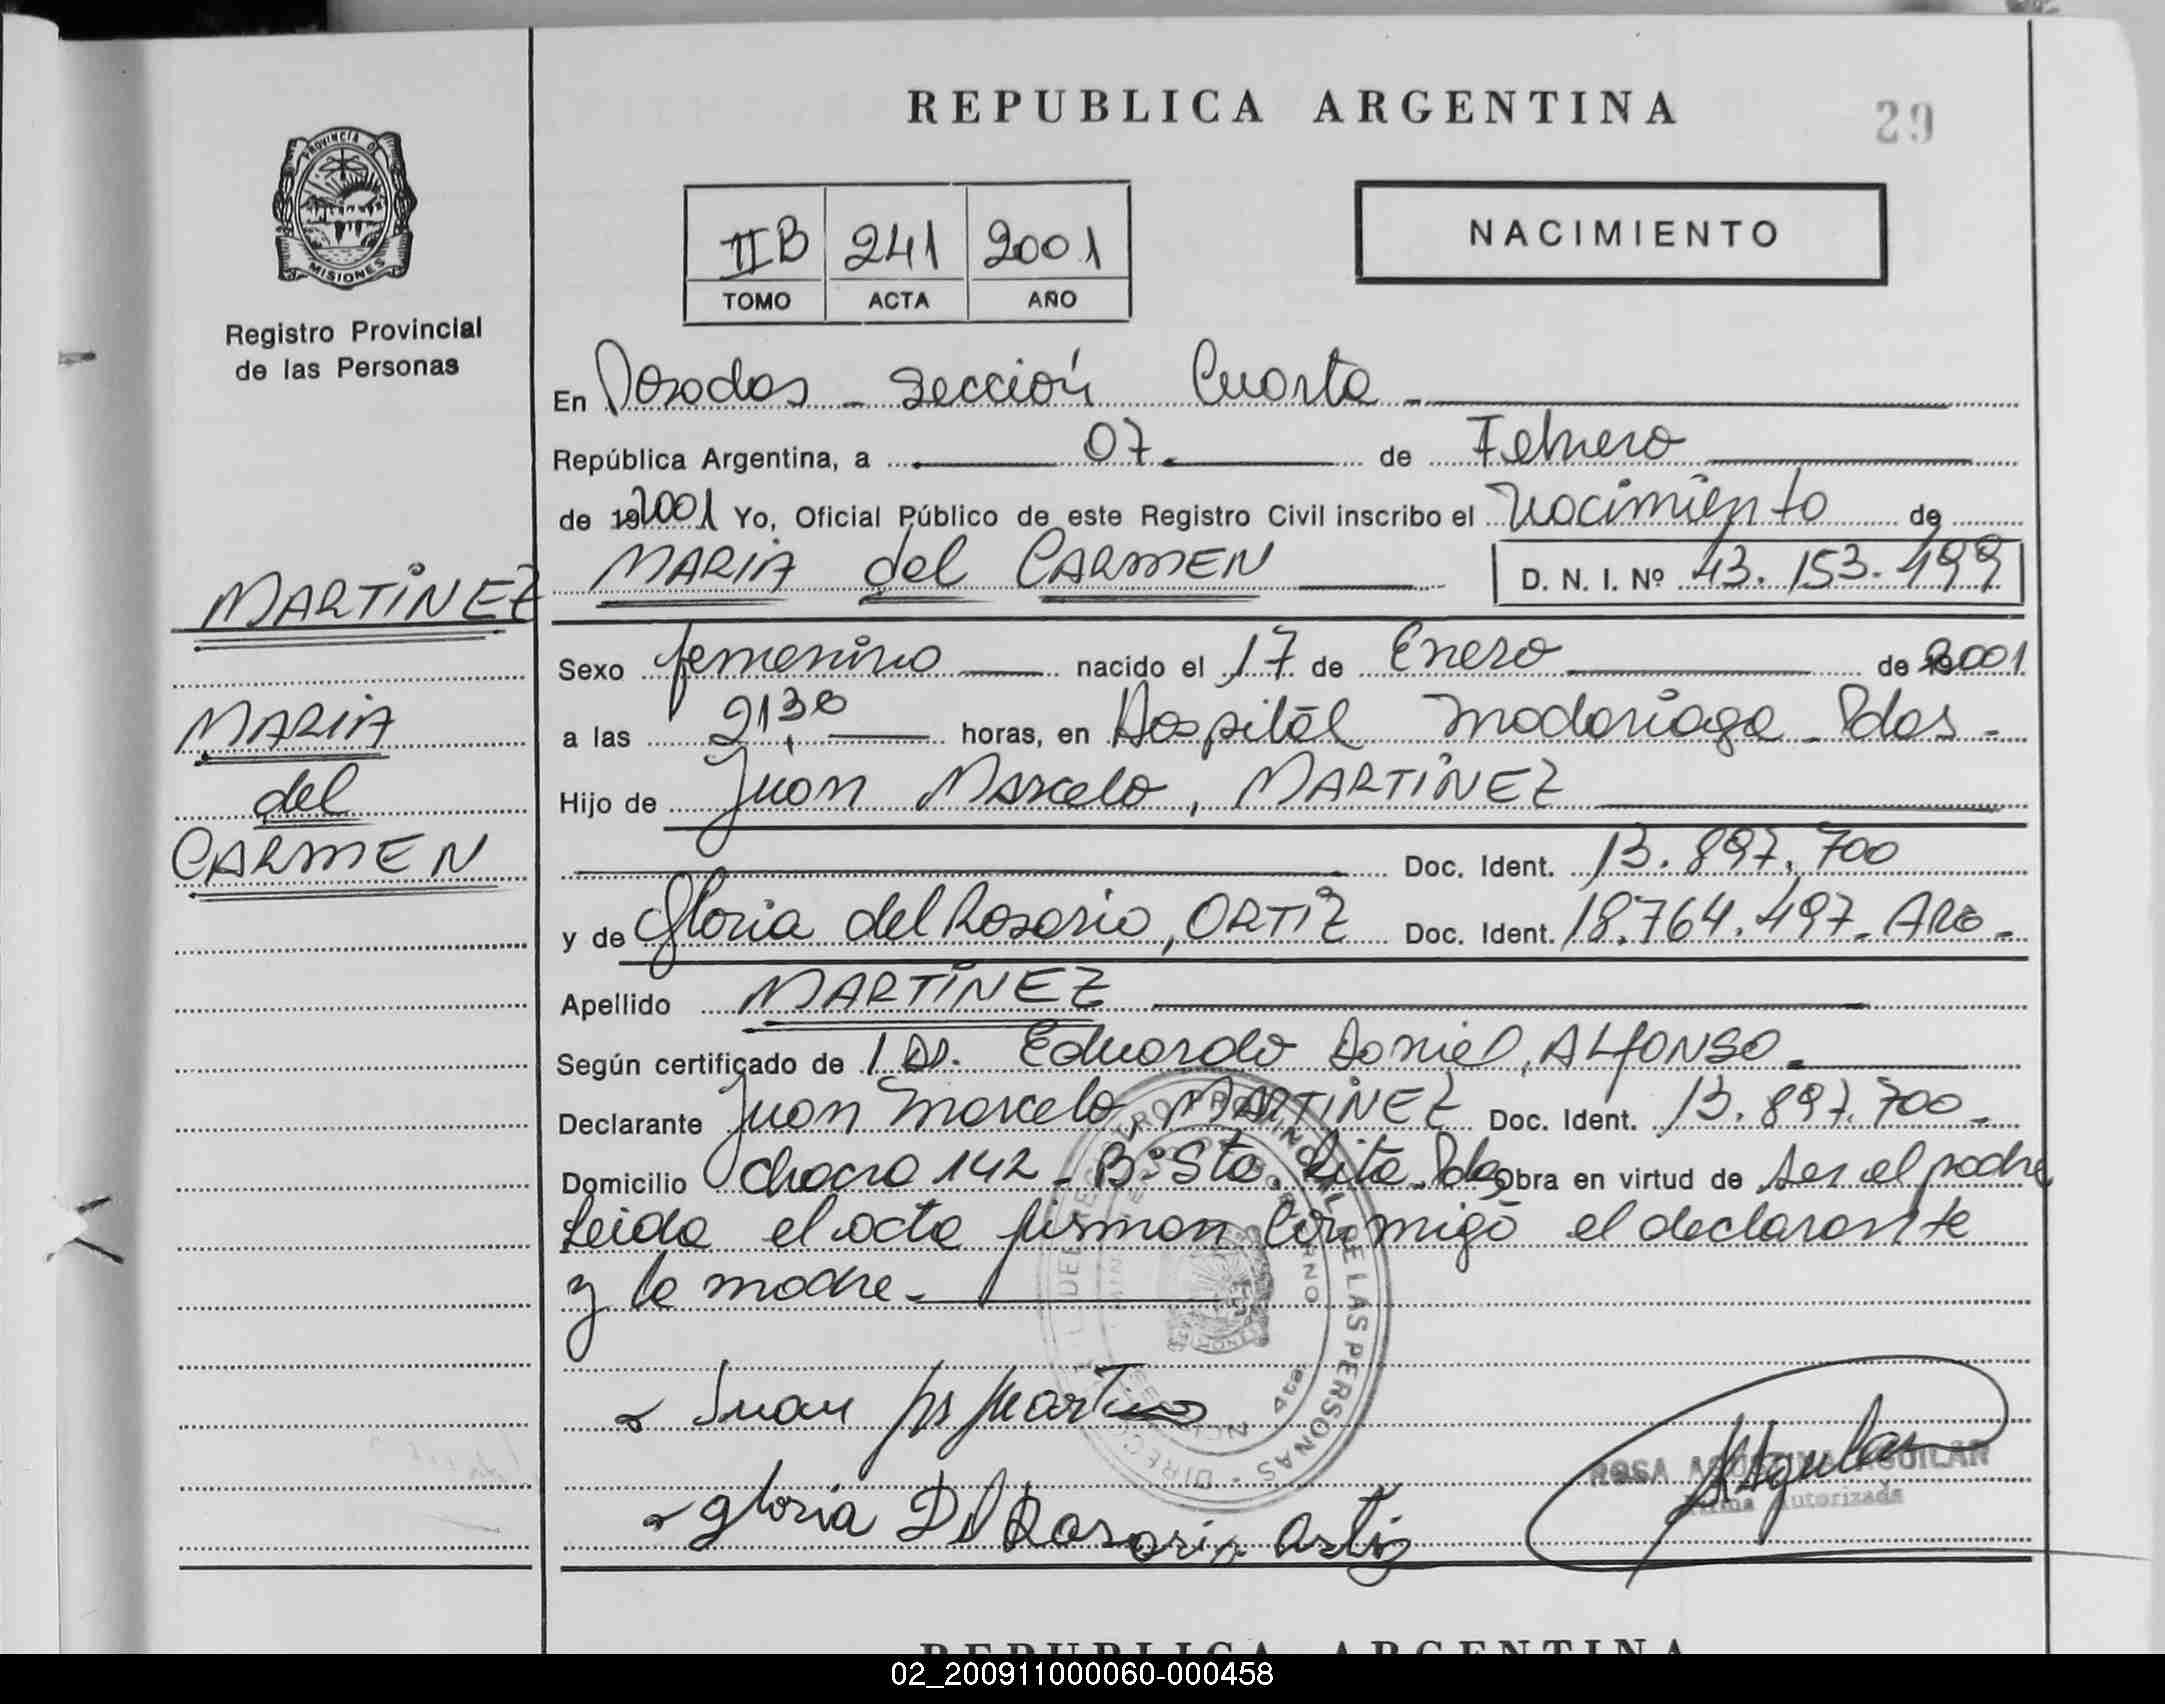 REPUBLICA ARGENTINA
29
PROVINCIA DE
MISIONES
Registro Provincial
de las Personas
IIB 241 2001
TOMO ACTA AÑO
NACIMIENTO
En Posadas - Sección Cuarta -
República Argentina, a 07 de Febrero
de 2001 Yo, Oficial Público de este Registro Civil inscribo el Nacimiento de
MARIA del CARMEN D. N. I. Nº 43.153.499
MARTINEZ
MARIA
del
CARMEN
Sexo femenino nacido el 17 de Enero de 2001
a las 21,30 horas, en Hospital Madariaga - Pdas -
Hijo de Juan Marcelo, MARTINEZ
Doc. Ident. 13.897.700
y de Gloria del Rosario, ORTIZ Doc. Ident. 18.764.497 - ARG -
Apellido MARTINEZ
Según certificado de 1 Dr. Eduardo Daniel, ALFONSO -
Declarante Juan Marcelo, MARTINEZ Doc. Ident. 13.897.700 -
Domicilio Chacra 142 - Bº Sta. Rita - Pdas Obra en virtud de ser el padre
Leida el acta firman conmigo el declarante
y la madre -
Juan Martinez
gloria Del Rosario Ortiz
ROSA AGUSTINA AGUILAR
Firma Autorizada
REPUBLICA ARGENTINA
02_200911000060-000458